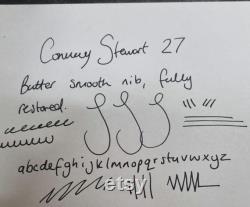 Conway Stewart 27
Butter smooth nib, fully
restored.
abcdefghijklmnopqrstuvwxyz
Etsy